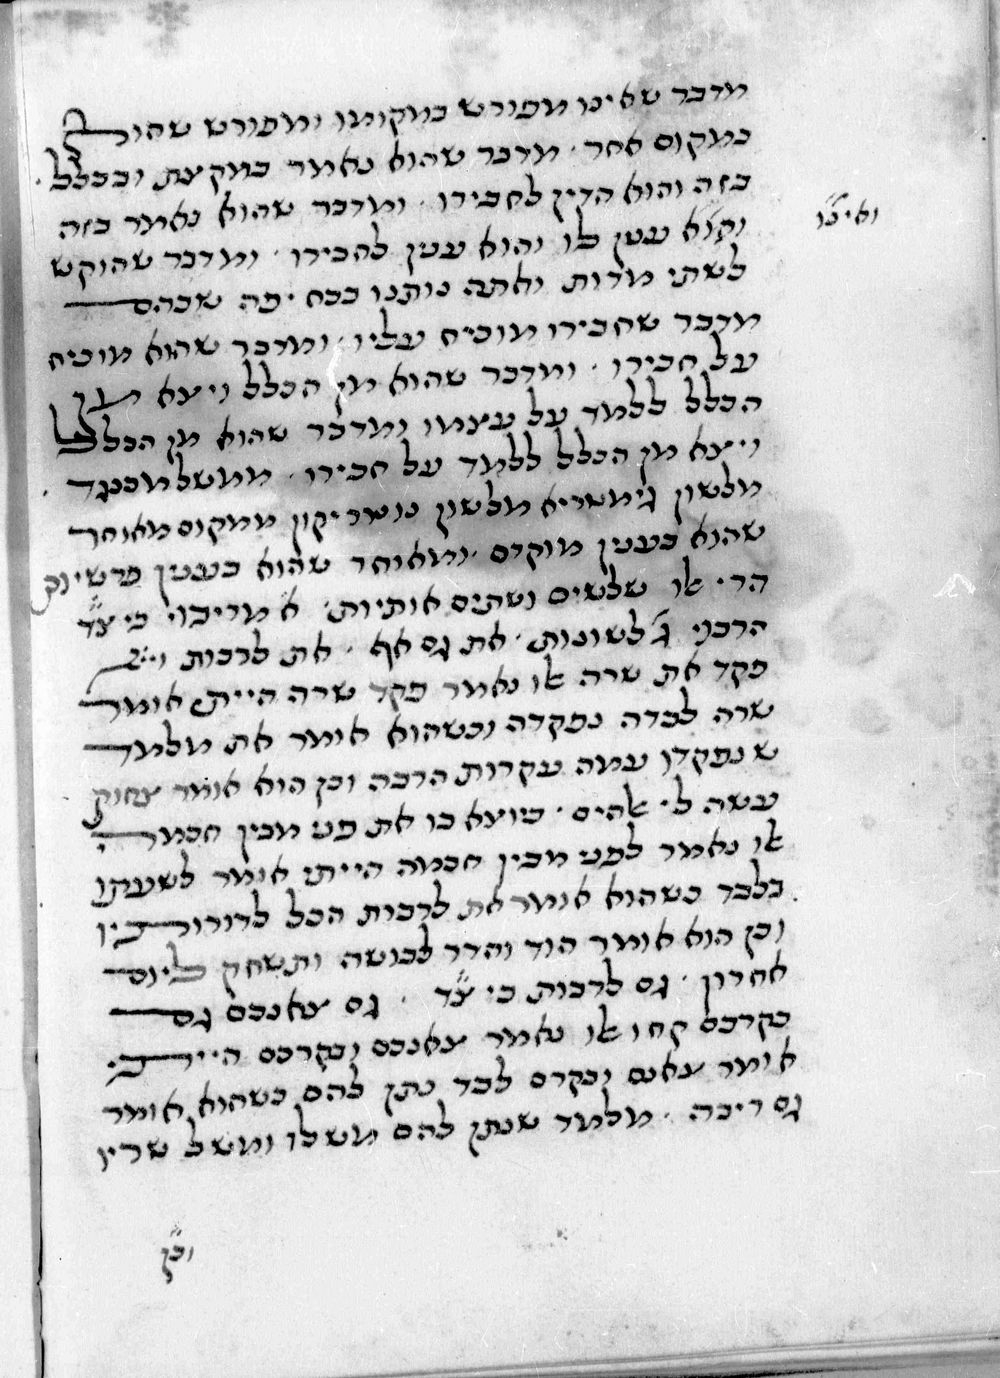 מדבר שאינו מפורש במקומו ומפורש שהוא
במקום אחר · מדבר שהוא נאמר במקצת ובכלל ·
בזה והוא הדין לחבירו · ומדבר שהוא נאמר בזה
ואינו
והוא ענין לו והוא ענין לחבירו · ומדבר שהוקש
לשתי מדות ואתה נותנו בכח יפה שבהם
מדבר שחבירו מוכיח עליו · ומדבר שהוא מוכיח
על חבירו · ומדבר שהוא מן הכלל ויצא מן
הכלל ללמד על עצמו ומדבר שהוא מן הכלל
ויצא מן הכלל ללמד על חבירו · ממשל מכנגד ·
מלשון גימטריא מלשון נוטריקון ממקום מאוחר
שהוא בענין מוקדם · ומאוחר שהוא בענין פרשיות
הרי אלו שלשים ושתים אותיות · א׳ מריבוי כיצד
הרבוי ג׳ לשונות · את גם אף · את לרבות
פקד את שרה אלו נאמר פקד שרה הייתי אומר
שרה לבדה נפקדה וכשהוא אומר את מלמד
שנפקדו עמה עקרות הרבה וכן הוא אומר צחוק
עשה לי אלהים · כיוצא בו את פני מבין חכמה
אלו נאמר לפני מבין חכמה הייתי אומר לשעתו
בלבד כשהוא אומר את לרבות הכל לדורותיו
וכן הוא אומר הוד והדר לבושה ותשחק ליום
אחרון · גם לרבות כיצד · גם צאנכם גם
בקרכם קחו אלו נאמר צאנכם ובקרכם הייתי
אומר צאנם ובקרם לבד נתן להם כשהוא אומר
גם ריבה · מלמד שנתן להם משלו ומשל שריו
וכן